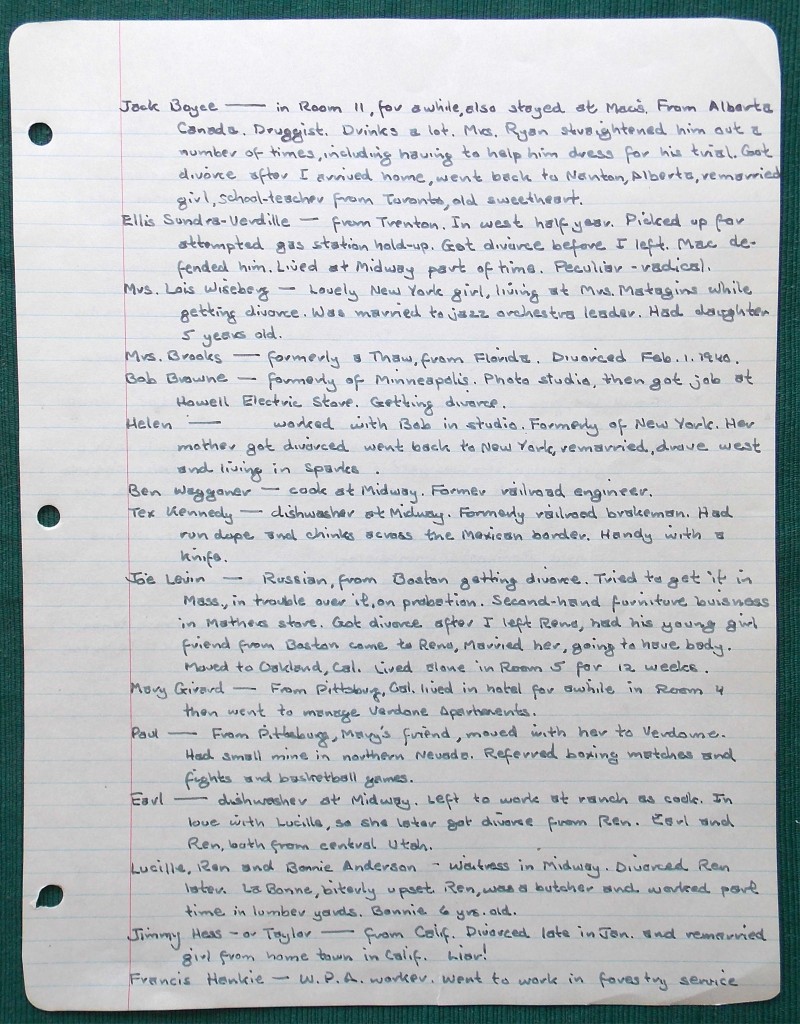 Jack Boyce — in Room 11, for awhile, also stayed at Mac's. From Alberta
Canada. Druggist. Drinks a lot. Mrs. Ryan straightened him out a
number of times, including having to help him dress for his trial. Got
divorce after I arrived home, went back to Nanton, Alberta, remarried
girl, school-teacher from Toronto, old sweetheart.
Ellis Sundra-Verdille — from Trenton. In west half year. Picked up for
attempted gas station hold-up. Got divorce before I left. Mac de-
fended him. Lived at Midway part of time. Peculiar - radical.
Mrs. Lois Wiseberg — Lovely New York girl, living at Mrs. Matagins while
getting divorce. Was married to jazz orchestra leader. Had daughter
5 years old.
Mrs. Brooks — formerly a Thaw, from Florida. Divorced Feb. 1. 1940.
Bob Browne — formerly of Minneapolis. Photo studio, then got job at
Howell Electric Store. Getting divorce.
Helen — worked with Bob in studio. Formerly of New York. Her
mother got divorced went back to New York, remarried, drove west
and living in Sparks.
Ben Waggoner — cook at Midway. Former railroad engineer.
Tex Kennedy — dishwasher at Midway. Formerly railroad brakeman. Had
run dope and chinks across the Mexican border. Handy with a
knife.
Joe Levin — Russian, from Boston getting divorce. Tried to get it in
Mass., in trouble over it, on probation. Second-hand furniture buisness
in Mothers store. Got divorce after I left Reno, had his young girl
friend from Boston come to Reno, Married her, going to have body.
Moved to Oakland, Cal. Lived alone in Room 5 for 12 weeks.
Mary Girard — From Pittsburg, Cal. lived in hotel for awhile in Room 4
then went to manage Verdone Apartments.
Paul — From Pittsburg, Mary's friend, moved with her to Verdome.
Had small mine in northern Nevada. Refereed boxing matches and
fights and basketball games.
Earl — dishwasher at Midway. Left to work at ranch as cook. In
love with Lucille, so she later got divorce from Ren. Earl and
Ren, both from central Utah.
Lucille, Ren and Bonnie Anderson - Waitress in Midway. Divorced Ren
later. La Bonne, biterly upset. Ren, was a butcher and worked part
time in lumber yards. Bonnie 6 yrs. old.
Jimmy Hess - or Taylor — from Calif. Divorced late in Jan. and remarried
girl from home town in Calif. Liar!
Francis Hankie — W.P.A. worker. Went to work in forestry service